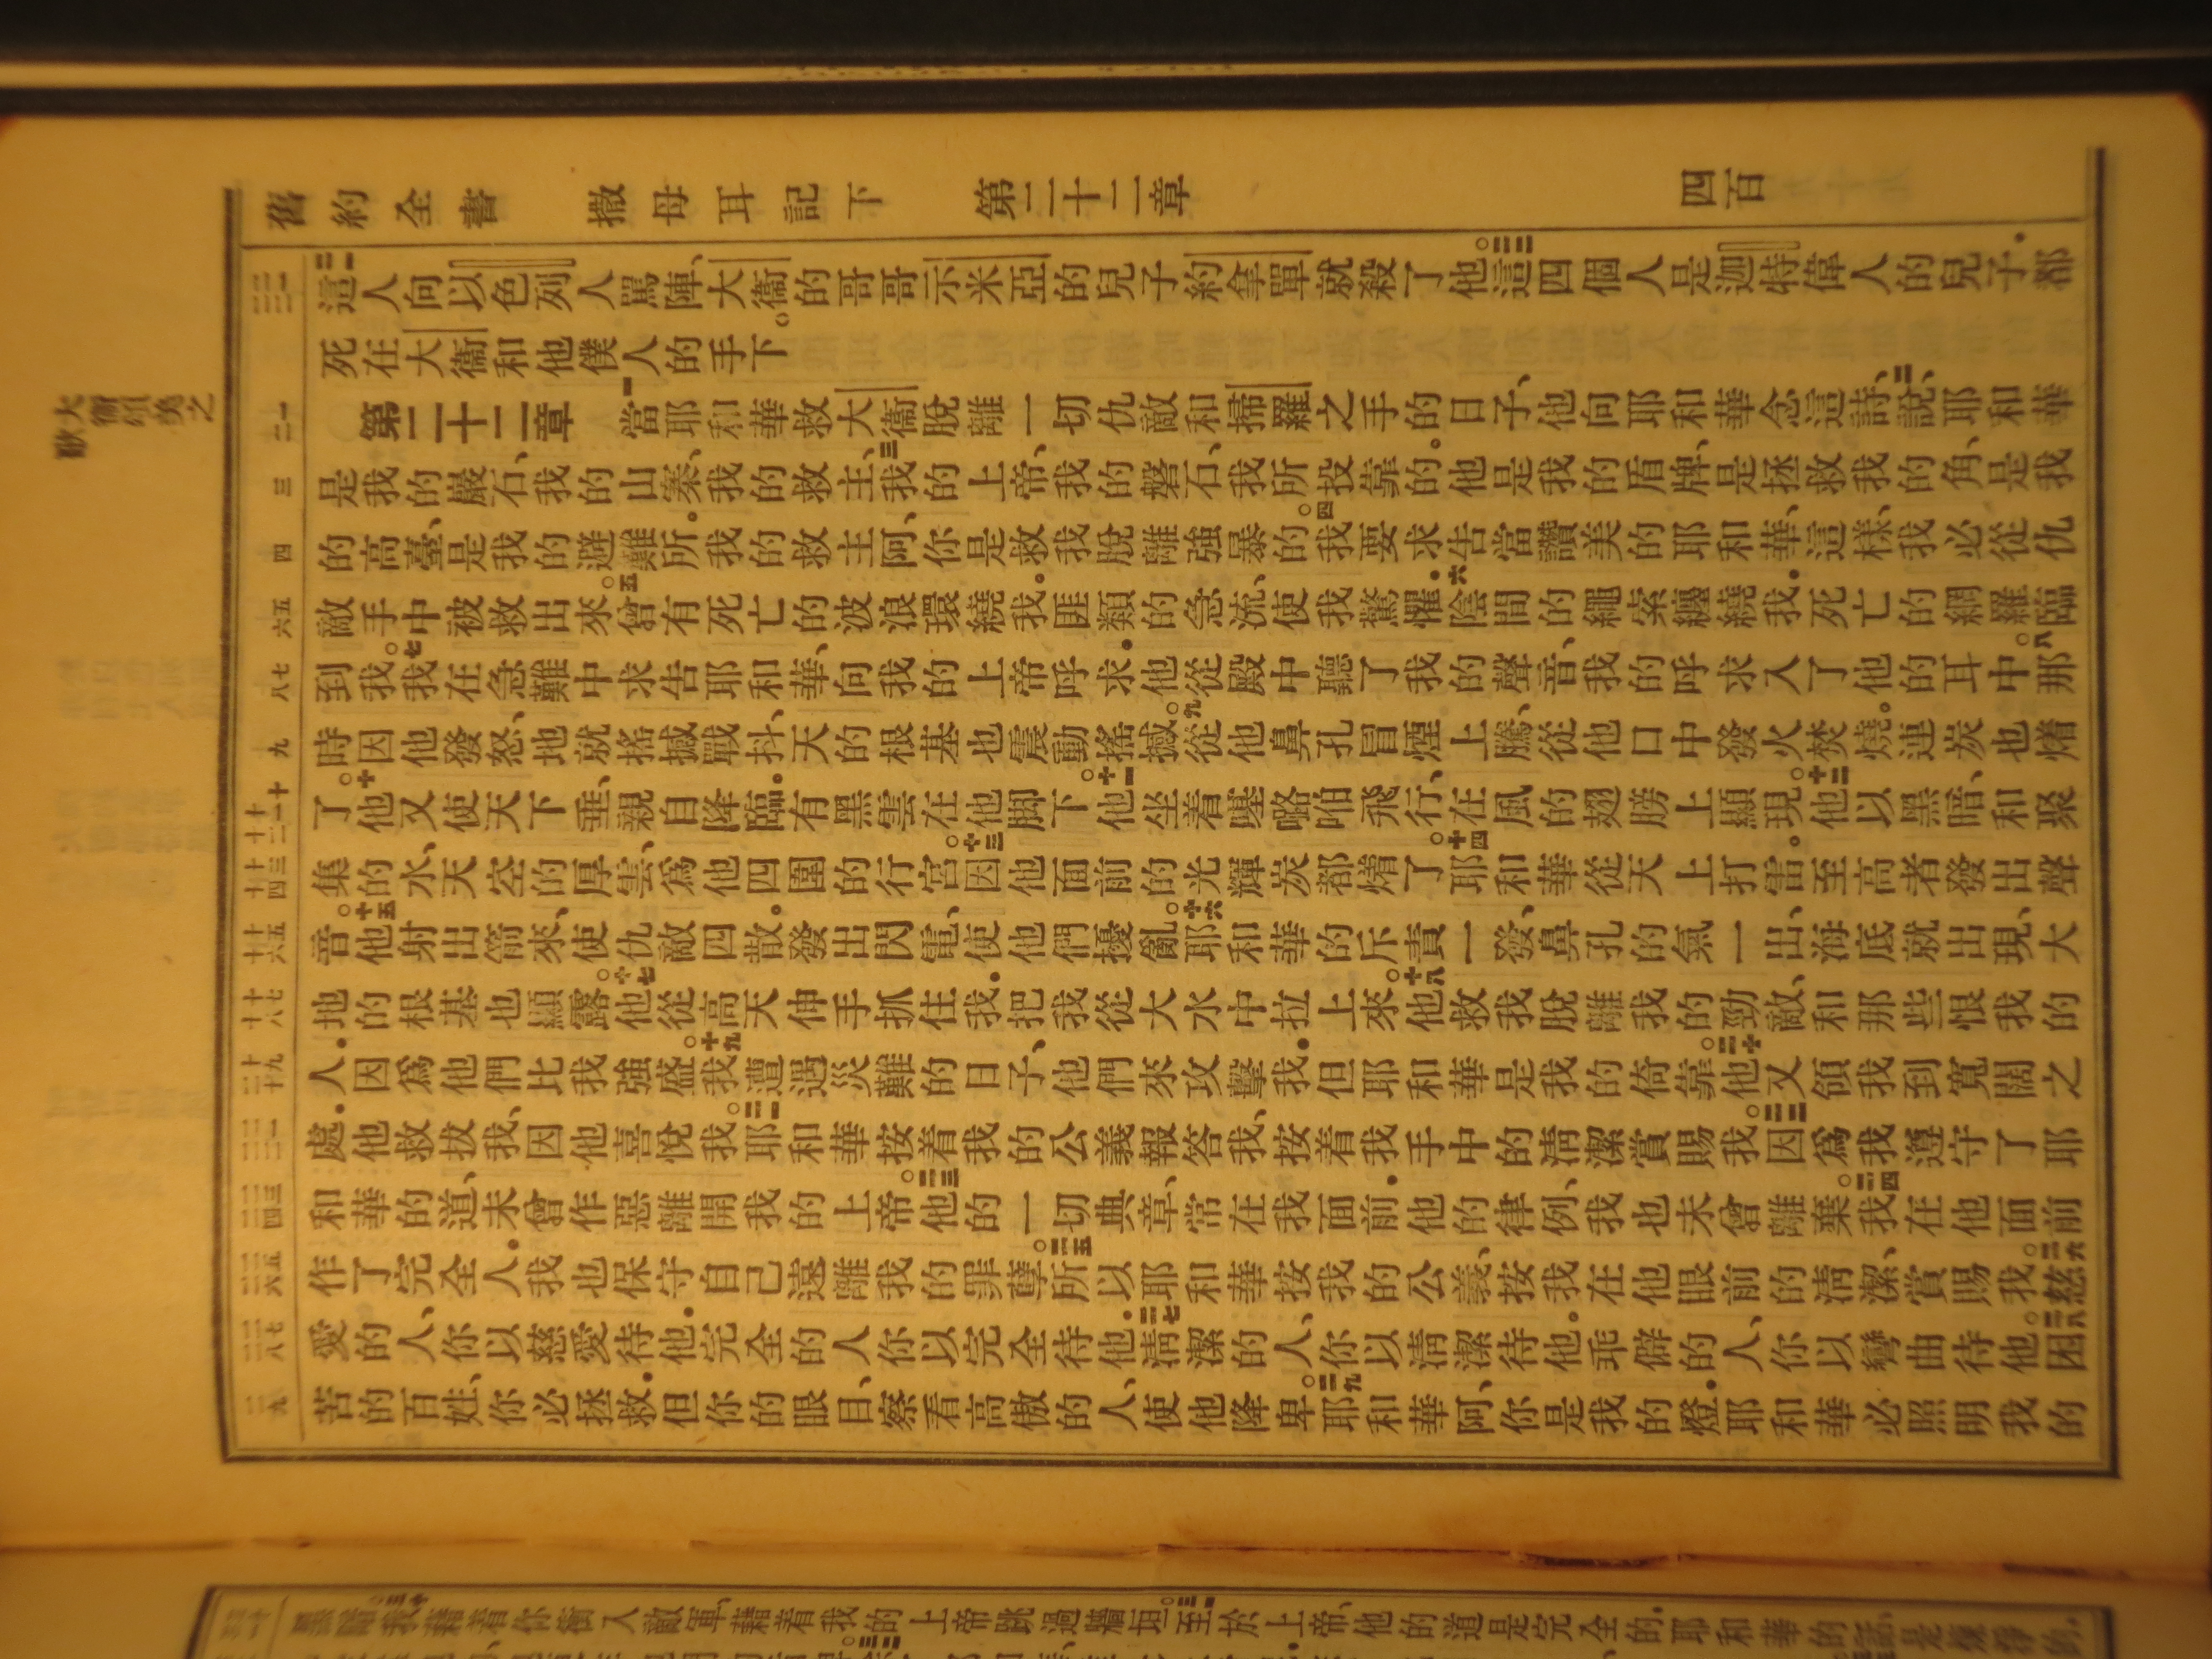 舊約全書 撒母耳記下 第二十二章 四百
大衞頌美之歌
二一 二二
這人向以色列人罵陣、大衞的哥哥示米亞的兒子約拿單就殺了他。二二這四個人是迦特偉人的兒子.都
死在大衞和他僕人的手下。
一 二
第二十二章 一當耶和華救大衞脫離一切仇敵和掃羅之手的日子、他向耶和華念這詩、二說、耶和華
三
是我的巖石、我的山寨、我的救主、三我的上帝、我的磐石、我所投靠的.他是我的盾牌、是拯救我的角、是我
四
的高臺、是我的避難所.我的救主阿、你是救我脫離強暴的。四我要求告當讚美的耶和華、這樣、我必從仇
五 六
敵手中被救出來。五曾有死亡的波浪環繞我.匪類的急流、使我驚懼.六陰間的繩索纏繞我.死亡的網羅臨
七 八
到我。七我在急難中求告耶和華、向我的上帝呼求.他從殿中聽了我的聲音、我的呼求入了他的耳中。八那
九
時因他發怒、地就搖撼戰抖、天的根基也震動搖撼。九從他鼻孔冒煙上騰、從他口中發火焚燒.連炭也㷮
十 十一 十二
了。十他又使天下垂、親自降臨.有黑雲在他脚下。十一他坐着𠼻𡀔咱飛行、在風的翅膀上顯現。十二他以黑暗、和聚
十三 十四
集的水、天空的厚雲、爲他四圍的行宮。十三因他面前的光輝炭都㷮了。十四耶和華從天上打雷.至高者發出聲
十五 十六
音。十五他射出箭來、使仇敵四散.發出閃電、使他們擾亂。十六耶和華的斥責一發、鼻孔的氣一出、海底就出現、大
十七 十八
地的根基也顯露。十七他從高天伸手抓住我.把我從大水中拉上來。十八他救我脫離我的勁敵、和那些恨我的
十九 二十
人.因爲他們比我強盛。十九我遭遇災難的日子、他們來攻擊我.但耶和華是我的倚靠。二十他又領我到寬闊之
二一 二二
處.他救拔我、因他喜悅我。二一耶和華按着我的公義報答我、按着我手中的淸潔賞賜我。二二因爲我遵守了耶
二三 二四
和華的道、未曾作惡離開我的上帝。二三他的一切典章、常在我面前.他的律例、我也未曾離棄。二四我在他面前
二五 二六
作了完全人.我也保守自己遠離我的罪孽。二五所以耶和華按我的公義、按我在他眼前的淸潔、賞賜我。二六慈
二七 二八
愛的人、你以慈愛待他.完全的人你以完全待他.二七淸潔的人、你以淸潔待他.乖僻的人、你以彎曲待他。二八困
二九
苦的百姓、你必拯救.但你的眼目、察看高傲的人、使他降卑。二九耶和華阿、你是我的燈.耶和華必照明我的
黑暗。三十我藉着你衝入敵軍、藉着我的上帝跳過牆垣。三一至於上帝、他的道是完全的.耶和華的話、是煉淨的.